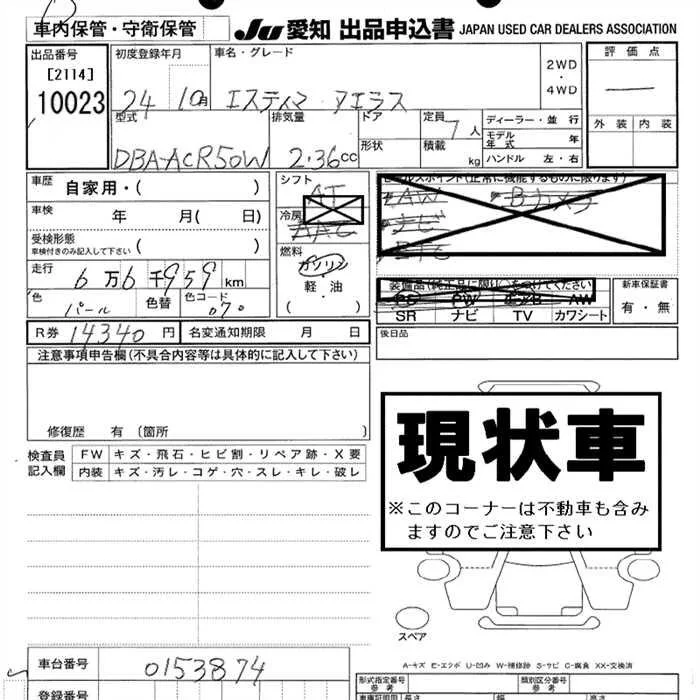 車内保管・守衛保管
JU 愛知 出品申込書 JAPAN USED CAR DEALERS ASSOCIATION
出品番号
[2114]
10023
初度登録年月
24 10月
車名・グレード
エスティマ アエラス
2WD
・
4WD
評価点
外装 内装
型式
DBA-ACR50W
排気量
2.36cc
ドア
形状
定員 7人
積載 kg
ディーラー・並行
モデル年式 年
ハンドル 左・右
車歴 自家用・( )
車検 年 月( 日)
受検形態
車検付きのみ記入して下さい ( )
走行 6万6千959km
色 パール 色替 色コード 070
R券 14340円 名変通知期限 月 日
シフト
AT
冷房
AAC
燃料
ガソリン
・
軽・油
( )
セールスポイント(正常に機能するものに限ります)
AW Bカメラ
ナビ
ETC
装備品(純正品に限り○をつけてください)
PS PW エアB AW
SR ナビ TV カワシート
新車保証書
有・無
後日品
注意事項申告欄(不具合内容等は具体的に記入して下さい)
修復歴 有 (箇所 )
検査員記入欄
FW キズ・飛石・ヒビ割・リペア跡・X要
内装 キズ・汚レ・コゲ・穴・スレ・キレ・破レ
現状車
※このコーナーは不動車も含み
ますのでご注意下さい
スペア
A-キズ E-エクボ U-凹み W-補修跡 S-サビ C-腐食 XX-交換済
車台番号 0153874
登録番号
形式指定番号
参考
類別区分番号
参考
長さ 幅 高さ